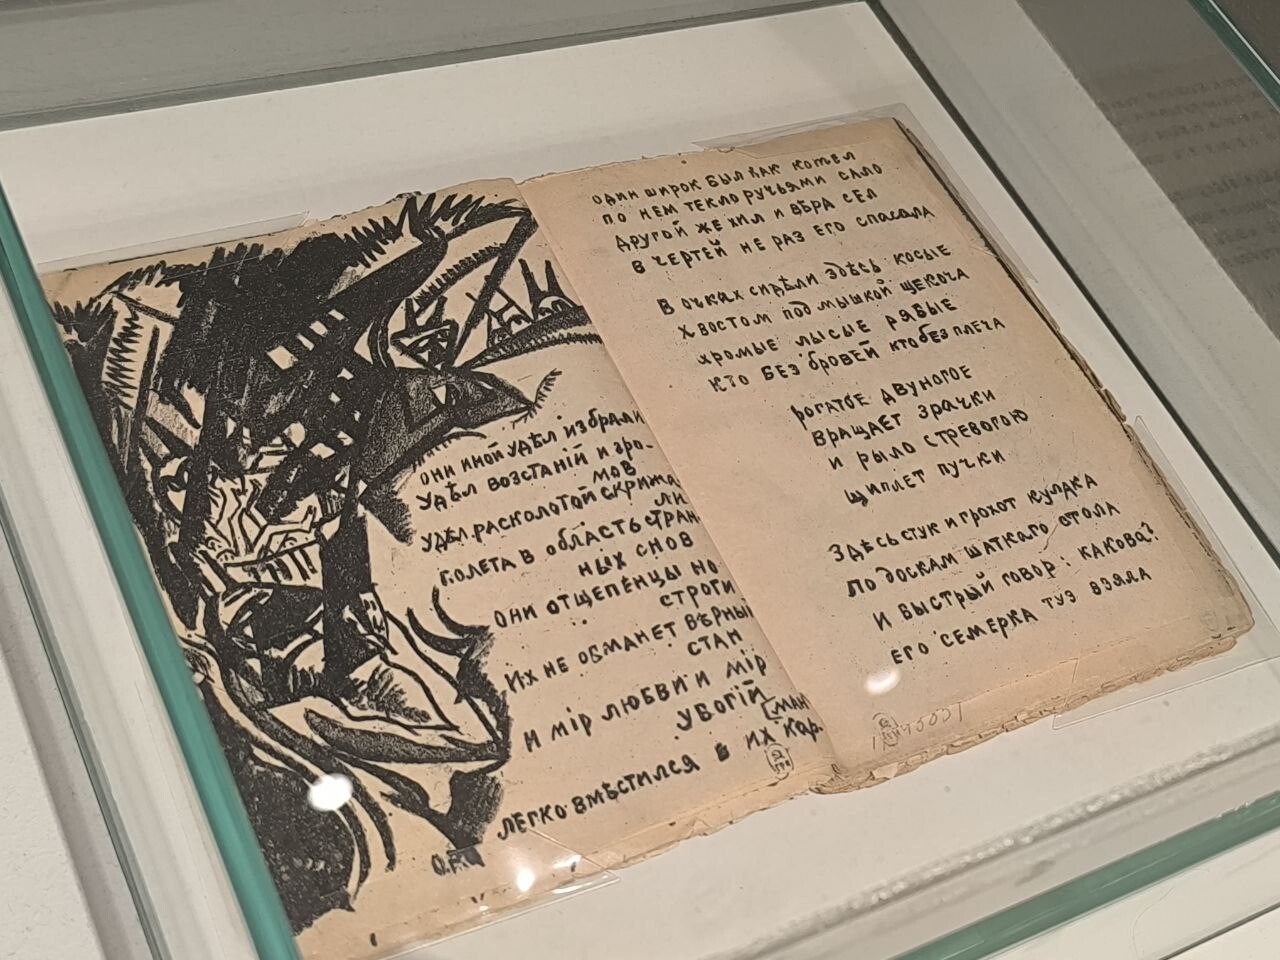 они иной удѣл избрали
удѣл возстанiй и гро-
мов
удѣл расколотой скрижа
ли
полета в область стран
ных снов
они отщепенцы но
строги
их не обманет вѣрный
стан
и мiр любви и мiр
убогiй
[ман
легко вмѣстился в их кар.
О.Р.
один широк был как котел
по нем текло ручьями сало
другой же хил и вѣра сел
в чертей не раз его спасала
в очках сидѣли здѣсь косые
хвостом под мышкой щекоча
хромые лысые рябые
кто без бровей кто без плеча
рогатое двуногое
вращает зрачки
и рыло стревогою
щиплет пучки
здѣсь стук и грохот кулака
по доскам шаткаго стола
и быстрый говор: какова?
его семерка туз взяла